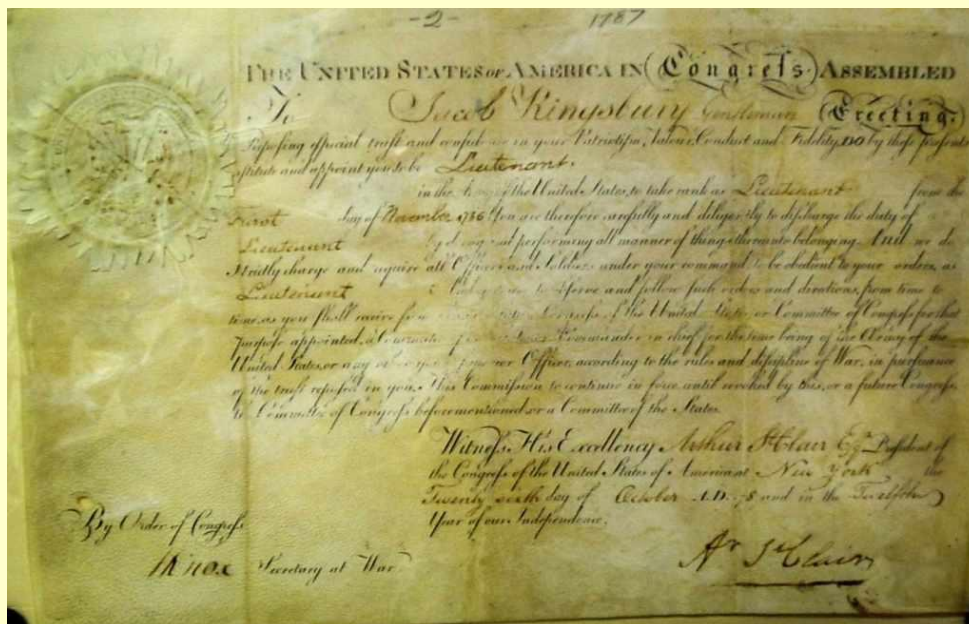 -2- 1787
THE UNITED STATES OF AMERICA IN Congreſs ASSEMBLED
To Jacob Kingsbury Gentleman Greeting.
Repoſing eſpecial truſt and confidence in your Patriotiſm, Valour, Conduct and Fidelity, DO by theſe preſents
conſtitute and appoint you to be Lieutenant
in the Army of the United States, to take rank as Lieutenant from the
First day of November 1786 You are therefore carefully and diligently to diſcharge the duty of
Lieutenant by doing and performing all manner of things thereunto belonging. And we do
Strictly charge and require all Officers and Soldiers under your command, to be obedient to your orders, as
Lieutenant to obſerve and follow ſuch orders and directions, from time to
time, as you ſhall receive from Congreſs of the United States or Committee of Congreſs for that
purpoſe appointed, a Commander in chief for the time being of the Army of the
United States, or any Officer, according to the rules and diſcipline of War, in purſuance
of the truſt repoſed in you. This Commiſſion to continue in force until revoked by this, or a future Congreſs,
the Committee of Congreſs beforementioned, or a Committee of the States.
Witneſs His Excellency Arthur St Clair Eqr. Preſident of
the Congreſs of the United States of America at New York the
Twenty sixth day of October A.D. and in the Twelfth
Year of our Independence.
By Order of Congreſs
Knox Secretary at War
Ar St Clair